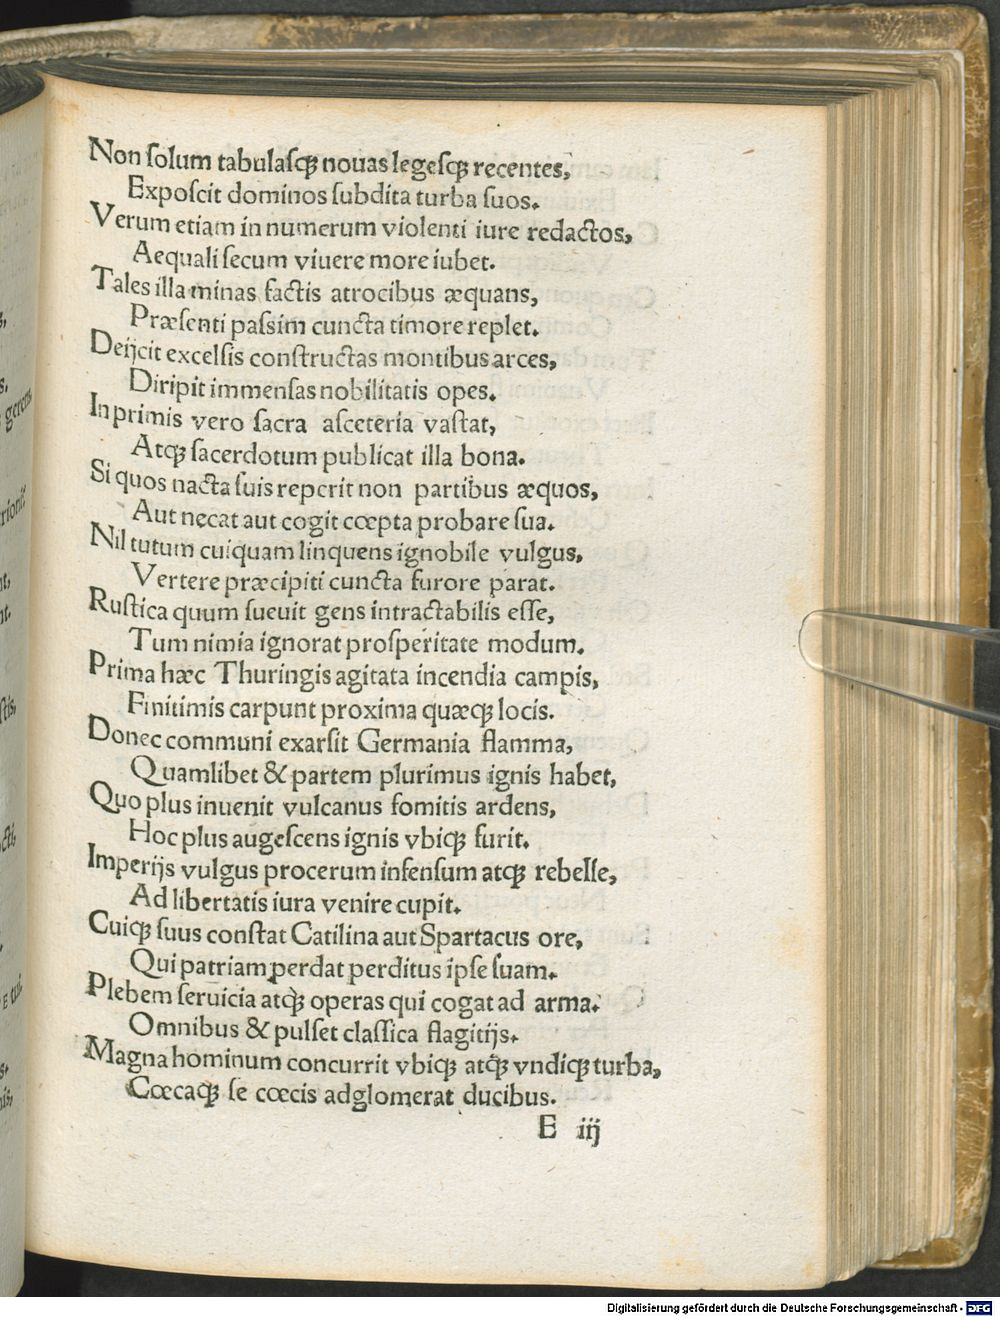 Non ſolum tabulaſqꝫ nouas legeſqꝫ recentes,
Expoſcit dominos ſubdita turba ſuos.
Verum etiam in numerum violenti iure redactos,
Aequali ſecum viuere more iubet.
Tales illa minas factis atrocibus æquans,
Præſenti paſsim cuncta timore replet.
Deijcit excelſis conſtructas montibus arces,
Diripit immenſas nobilitatis opes.
In primis vero ſacra aſceteria vaſtat,
Atqꝫ ſacerdotum publicat illa bona.
Si quos nacta ſuis reperit non partibus æquos,
Aut necat aut cogit cœpta probare ſua.
Nil tutum cuiquam linquens ignobile vulgus,
Vertere præcipiti cuncta furore parat.
Ruſtica quum ſueuit gens intractabilis eſſe,
Tum nimia ignorat proſperitate modum.
Prima hæc Thuringis agitata incendia campis,
Finitimis carpunt proxima quæqꝫ locis.
Donec communi exarſit Germania flamma,
Quamlibet & partem plurimus ignis habet,
Quo plus inuenit vulcanus fomitis ardens,
Hoc plus augeſcens ignis vbiqꝫ furit.
Imperijs vulgus procerum infenſum atqꝫ rebelle,
Ad libertatis iura venire cupit.
Cuiqꝫ ſuus conſtat Catilina aut Spartacus ore,
Qui patriam perdat perditus ipſe ſuam.
Plebem ſeruicia atqꝫ operas qui cogat ad arma.
Omnibus & pulſet claſſica flagitijs.
Magna hominum concurrit vbiqꝫ atqꝫ vndiqꝫ turba,
Cœcaqꝫ ſe cœcis adglomerat ducibus.
E iij
Digitalisierung gefördert durch die Deutsche Forschungsgemeinschaft - DFG